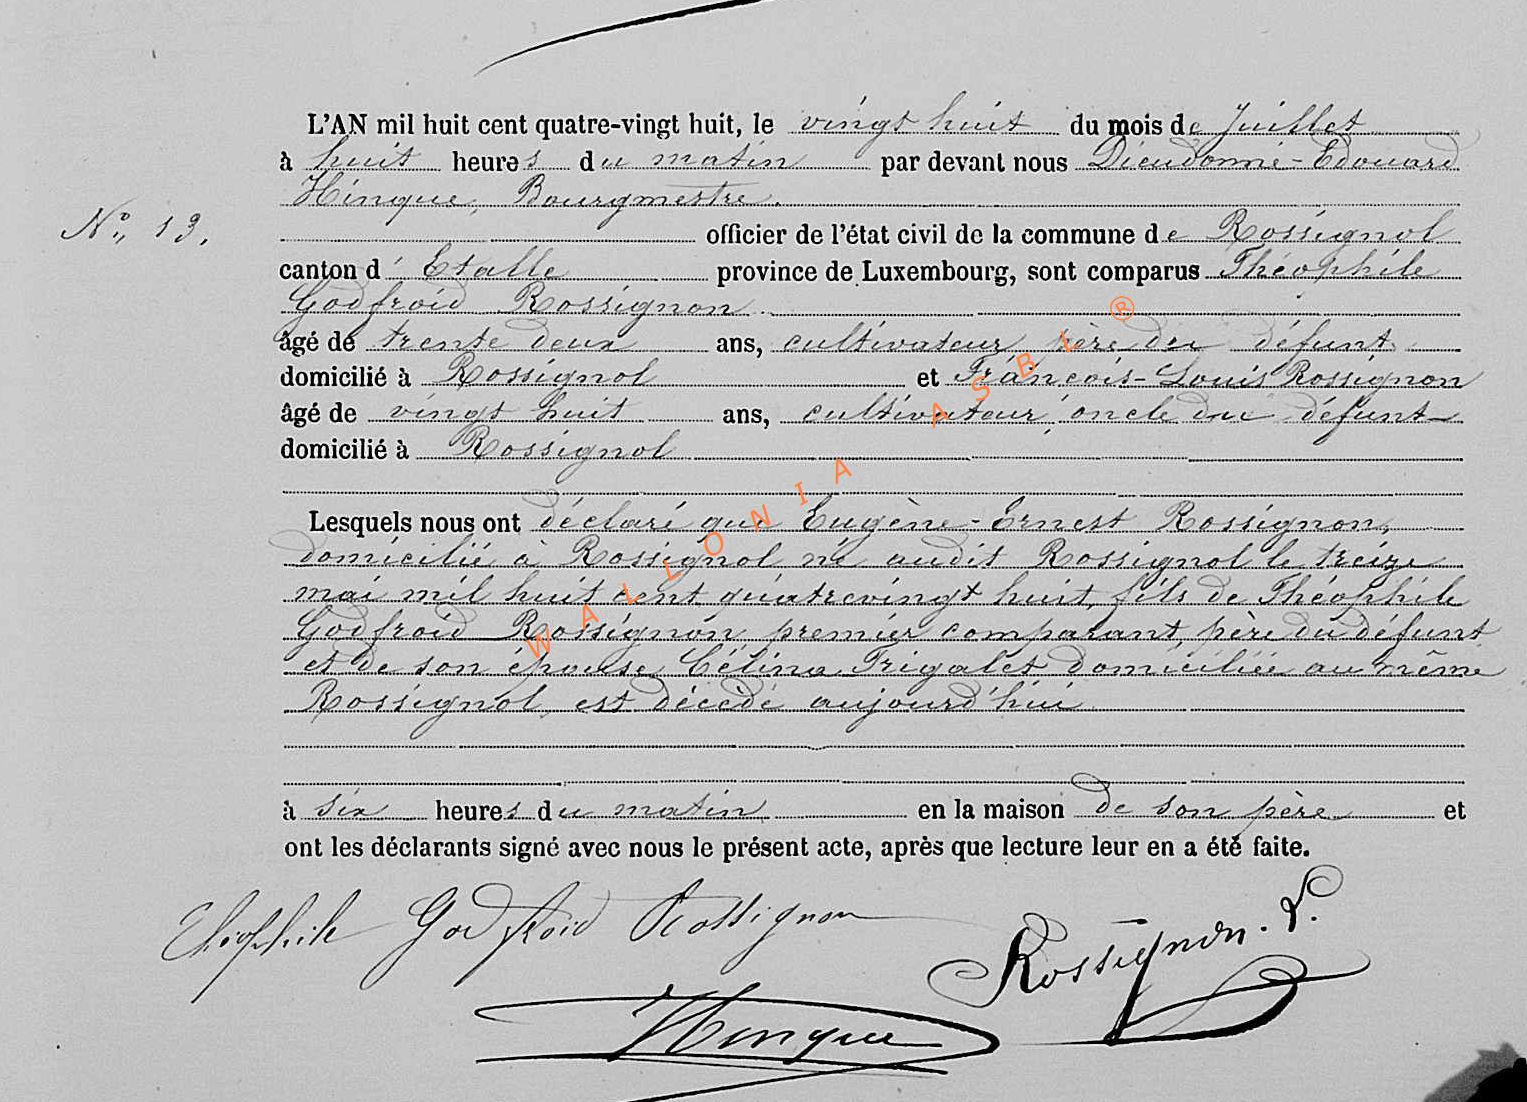 L'AN mil huit cent quatre-vingt huit, le vingt huit du mois de Juillet
à huit heures du matin par devant nous Dieudonné-Edouard
Hinque, Bourgmestre.
N° 13.
officier de l'état civil de la commune de Rossignol
canton d'Etalle province de Luxembourg, sont comparus Théophile
Godfroid Rossignon
âgé de trente deux ans, cultivateur père du défunt
domicilié à Rossignol et François-Louis Rossignon
âgé de vingt huit ans, cultivateur, oncle du défunt
domicilié à Rossignol
Lesquels nous ont déclaré que Eugène-Ernest Rossignon,
domicilié à Rossignol né audit Rossignol le treize
mai mil huit cent quatrevingt huit, fils de Théophile
Godfroid Rossignon, premier comparant, père du défunt
et de son épouse Célina Frigalet domiciliée au même
Rossignol, est décédé aujourd'hui
à six heures du matin en la maison de son père et
ont les déclarants signé avec nous le présent acte, après que lecture leur en a été faite.
Théophile Godfroid Rossignon
Rossignon. L.
Hinque
WALLONIA ASBL ®